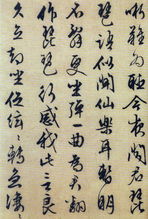 哳難為聽今夜聞君琵
琶語如聞仙樂耳暫明
莫辭更坐彈一曲為君翻
作琵琶行感我此言良
久立却坐促絃〻轉急淒